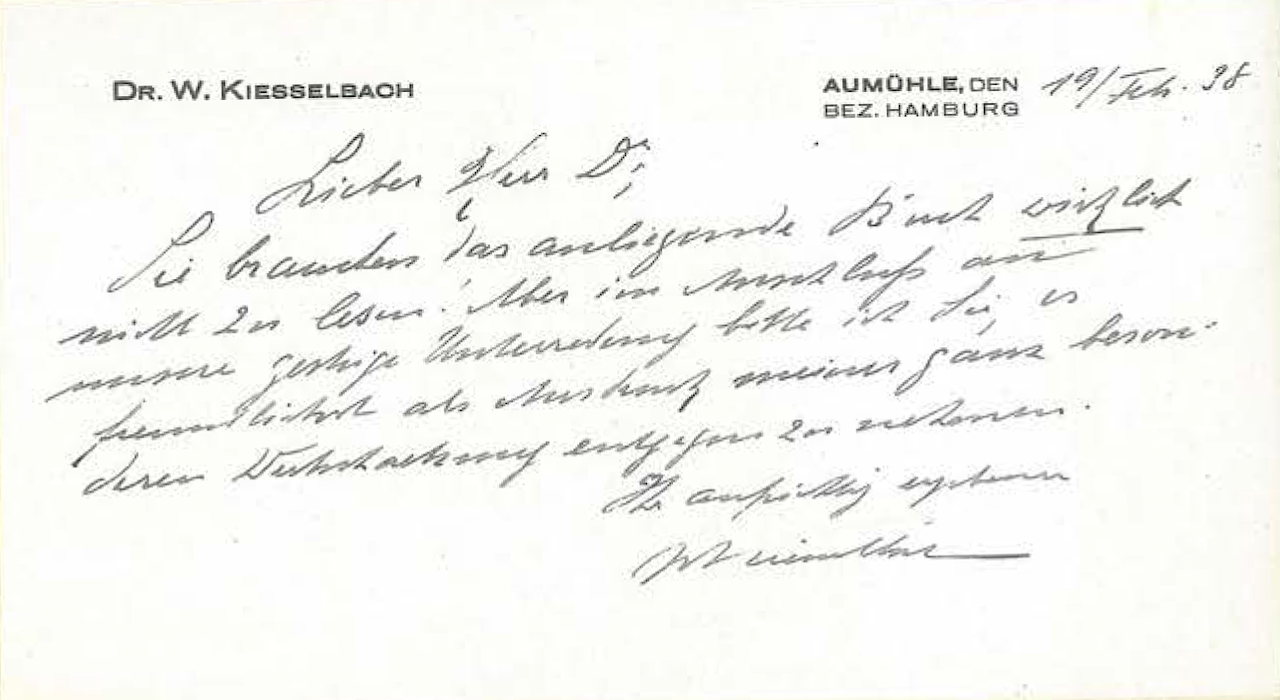 DR. W. KIESSELBACH
AUMÜHLE, DEN 19/Feb. 38
BEZ. HAMBURG
Lieber Herr Dr,
Sie brauchen das anliegende Buch wirklich
nicht zu lesen! Aber im Anschluß an
unsere gestrige Unterredung bitte ich Sie, es
freundlichst als Ausdruck meiner ganz beson-
deren Wertschaetzung entgegen zu nehmen.
Ihr aufrichtig ergebener